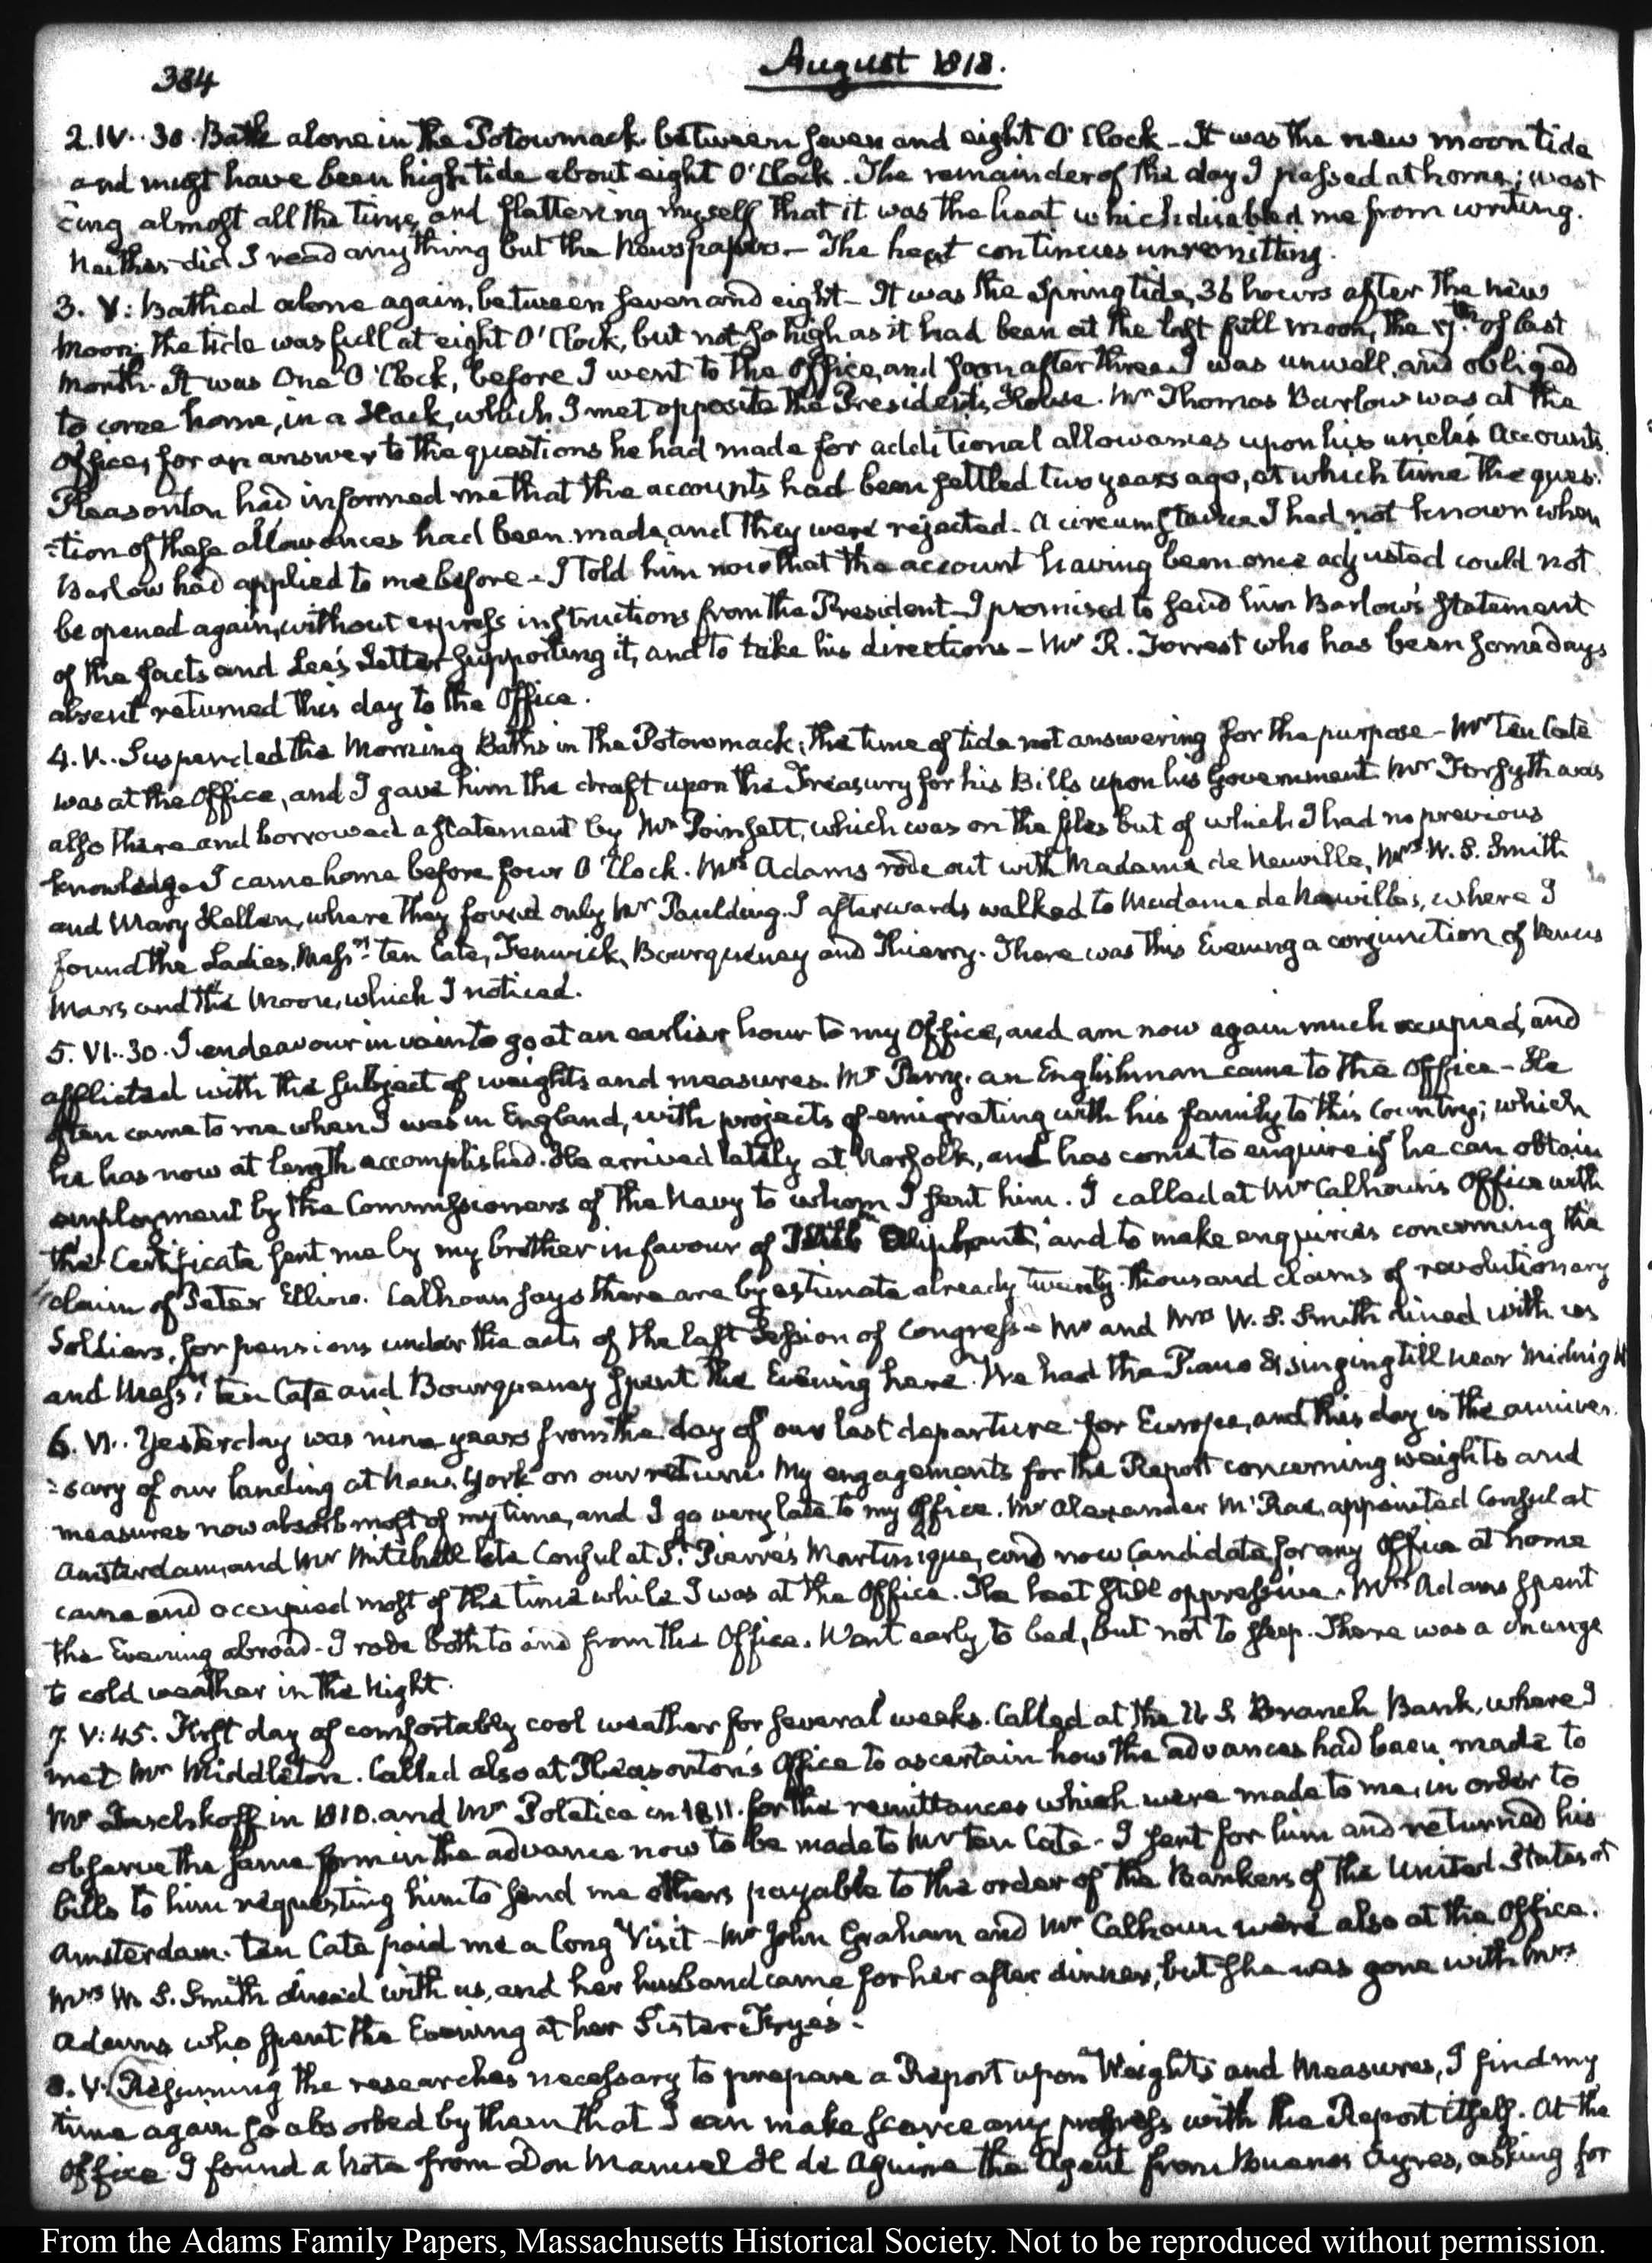 384
August 1818.
2. IV..30. Bath alone in the Potowmack between seven and eight O'Clock – It was the new moon tide
and must have been high tide about eight O'Clock. The remainder of the day I passed at home; wast
ing almost all the time, and flattering myself that it was the heat which disabled me from writing.
Neither did I read any thing but the Newspapers – The heat continues unremitting.
3. V: Bathed alone again, between seven and eight – It was the Spring tide, 36 hours after the new
Moon; the tide was full at eight O'Clock, but not so high as it had been at the last full moon, the of last
Month. It was One O'Clock, before I went to the Office, and soon after three I was unwell, and obliged
to come home, in a Hack, which I met opposite the President's House. Mr Thomas Barlow was at the
Office, for an answer to the questions he had made for additional allowances upon his uncle's Accounts.
Pleasonton had informed me that the accounts had been settled two years ago, at which time the ques-
-tion of these allowances had been made, and they were rejected. A circumstance I had not known when
Barlow had applied to me before – I told him now that the account having been once adjusted could not
be opened again, without express instructions from the President – I promised to send him Barlow's statement
of the facts and Lee's Letter supporting it, and to take his directions – Mr R. Forrest who has been some days
absent returned this day to the Office.
4. V.. Suspended the Morning Baths in the Potowmack; the time of tide not answering for the purpose – Mr Ten Cate
was at the Office, and I gave him the draft upon the Treasury for his Bills upon his Government. Mr Forsyth was
also there and borrowed a statement by Mr Poinsett, which was on the files but of which I had no previous
knowledge. I came home before four O'Clock. Mrs Adams rode out with Madame de Neuville, Mrs W. S. Smith
and Mary Hellen, where they found only Mr Paulding. I afterwards walked to Madame de Neuville's, where I
found the Ladies, Messrs ten Cate, Fenwick, Bourqueney and Thierry. There was this Evening a conjunction of Venus
Mars and the Moon, which I noticed.
5. VI..30. I endeavour in vain to go at an earlier hour to my Office, and am now again much occupied, and
afflicted with the subject of weights and measures. Mr Parry, an Englishman came to the Office – He
often came to me when I was in England, with projects of emigrating with his family to this Country; which
he has now at length accomplished. He arrived lately at Norfolk, and has come to enquire if he can obtain
employment by the Commissioners of the Navy to whom I sent him. I called at Mr Calhoun's Office with
the Certificate sent me by my brother in favour of Oliphant, and to make enquiries concerning the
claim of Peter Ellms. Calhoun says there are by estimate already twenty thousand claims of revolutionary
Soldiers, for pensions under the acts of the last Session of Congress – Mr and Mrs W. S. Smith dined with us
and Messrs ten Cate and Bourqueney spent the Evening here. We had the Piano & singing till near Midnight
6. VI.. Yesterday was nine years from the day of our last departure for Europe, and this day is the anniver-
-sary of our landing at New-York on our return. My engagements for the Report concerning weights and
measures now absorb most of my time, and I go very late to my Office. Mr Alexander McRae, appointed Consul at
Amsterdam, and Mr Mitchell late Consul at St. Pierre's Martinique, and now Candidate for any Office at home
came and occupied most of the time while I was at the Office. The heat still oppressive. Mrs Adams spent
the Evening abroad – I rode both to and from the Office. Went early to bed, but not to sleep. There was a change
to cold weather in the Night.
7. V:45. First day of comfortably cool weather for several weeks. Called at the U S. Branch Bank, where I
met Mr Middleton. Called also at Pleasonton's Office to ascertain how the advances had been made to
Mr Daschkoff in 1810. and Mr Poletica in 1811. for the remittances which were made to me, in order to
observe the same form in the advance now to be made to Mr ten Cate – I sent for him and returned his
bills to him requesting him to send me others payable to the order of the Bankers of the United States at
Amsterdam. Ten Cate paid me a long Visit – Mr John Graham and Mr Calhoun were also at the Office.
Mrs W. S. Smith dined with us, and her husband came for her after dinner, but she was gone with Mrs
Adams who spent the Evening at her Sister Frye's.
8. V: Resuming the researches necessary to prepare a Report upon Weights and Measures, I find my
time again so absorbed by them that I can make scarce any progress with the Report itself. At the
Office I found a Note from Don Manuel H de Aguirre the Agent from Buenos Ayres, asking for
From the Adams Family Papers, Massachusetts Historical Society. Not to be reproduced without permission.